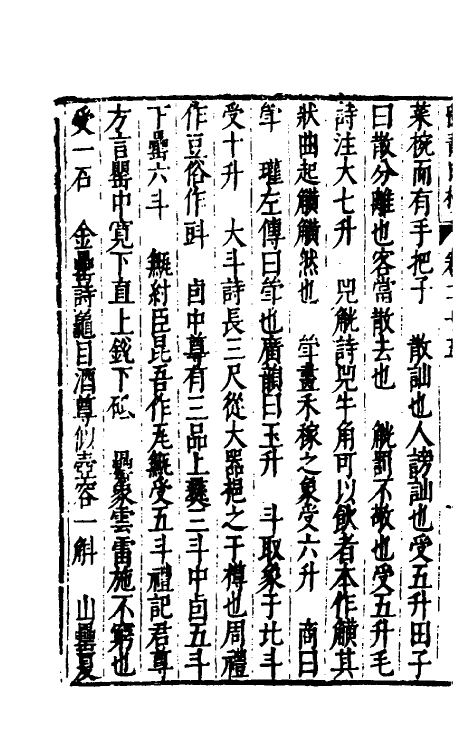 菜椀而有手把子　散訕也人謗訕也受五升田子
曰散分離也客當散去也　觥罰不敬也受五升毛
詩注大七升　兕觥詩兕牛角可以飲者本作觵其
狀曲起觵觵然也　斝畫禾稼之象受六升　商曰
斝　瓘左傳曰斝也廣韻曰玉升　斗取象于北斗
受十升　大斗詩長三尺從大器挹之于樽也周禮
作豆俗作㪷　卣中尊有三品上彝三斗中卣五斗
下罍六斗　甒紂臣昆吾作瓦甒受五斗禮記君尊
方言罌中寬下直上銳下砥　罍象雲雷施不窮也
受一石　金罍詩龜目酒尊似壺容一斛　山罍夏